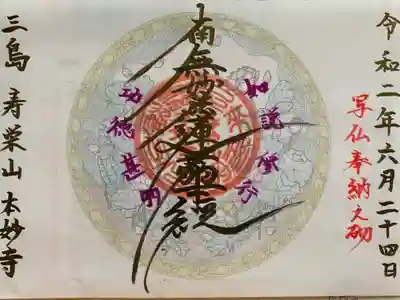 令和二年六月二十四日
写仏奉納之砌
如説修行
南無妙法蓮華経
功徳甚明
三島 寿栄山 本妙寺